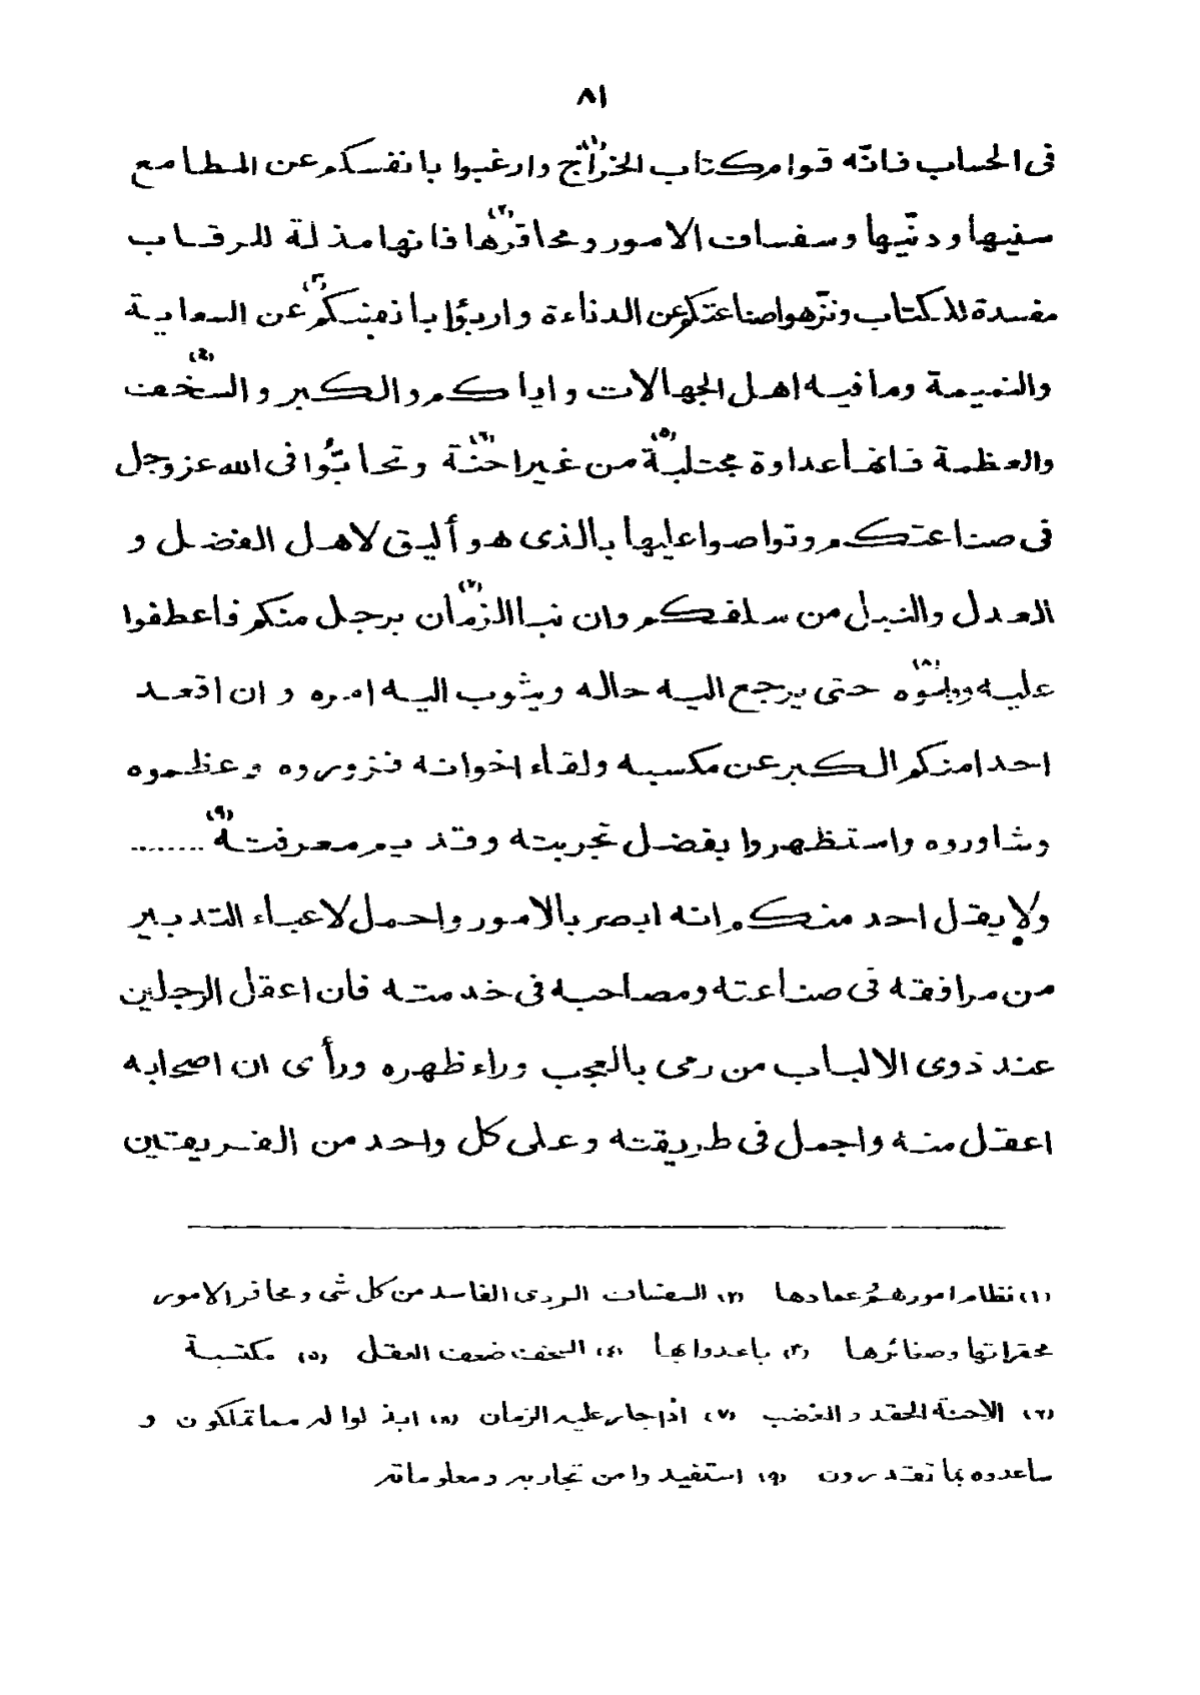 ٨١
فى الحساب فانّه قوام كتاب الخراج(١) وارغبوا بانفسكم عن المطامع
سنيها ودنّيها وسفساف الامور ومحاقرها(٢) فانها مذلة للرقاب
مفسدة للكتاب ونزّهوا صناعتكم عن الدناءة واربؤا بانفسكم(٣) عن السعاية
والنميمة وما فيه اهل الجهالات واياكم والكبر والسخف(٤)
والعظمة فانها عداوة مجتلبة(٥) من غير احنة(٦) وتحابّوا فى الله عزوجل
فى صناعتكم وتواصوا عليها بالذى هو أليق لاهل الفضل و
العدل والنبل من سلفكم وان نبا الزمان(٧) برجل منكم فاعطفوا
عليه وواسوه(٨) حتى يرجع اليه حاله ويثوب اليه امره وان اقعد
احدا منكم الكبر عن مكسبه ولقاء اخوانه فزوروه وعظموه
وشاوروه واستظهروا بفضل تجربته وقديم معرفته(٩) ........
ولا يقل احد منكم انه ابصر بالامور واحمل لاعباء التدبير
من مرافقه فى صناعته ومصاحبه فى خدمته فان اعقل الرجلين
عند ذوى الالباب من رمى بالعجب وراء ظهره ورأى ان اصحابه
اعقل منه واجمل فى طريقته وعلى كل واحد من الفريقين
(١) نظام امورهم وعمادها (٢) السفساف الردى الفاسد من كل شى ومحاقر الامور
محقراتها وصغائرها (٣) باعدوا بها (٤) السخف ضعف العقل (٥) مكتسبة
(٦) الاحنة الحقد والغضب (٧) اذا جار عليه الزمان (٨) ابذلوا له مما تملكون و
ساعدوه بما تقتدرون (٩) استفيدوا من تجاربه ومعلوماته